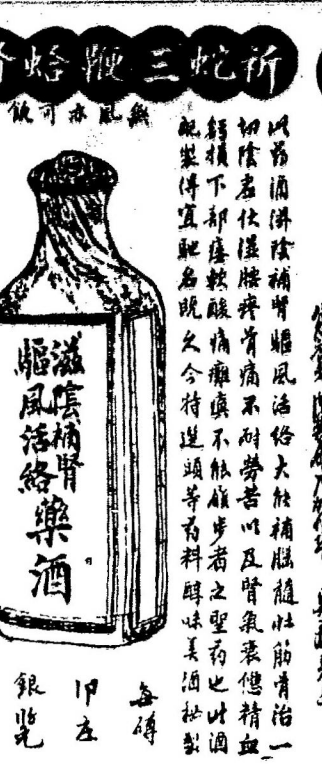 祈蛇三鞭蛤
無風亦可飲
此葯酒滋陰補腎驅風活絡大能補腦髓壯筋骨治一
切陰虛仕溼腰疼骨痛不耐勞苦以及腎氣衰憊精血
虧損下部痿軟酸痛癱瘓不能履步者之聖葯也此酒
配製得宜馳名既久今特選頭等葯料醇味美酒秘製
滋陰補腎
驅風活絡
藥酒
每
銀